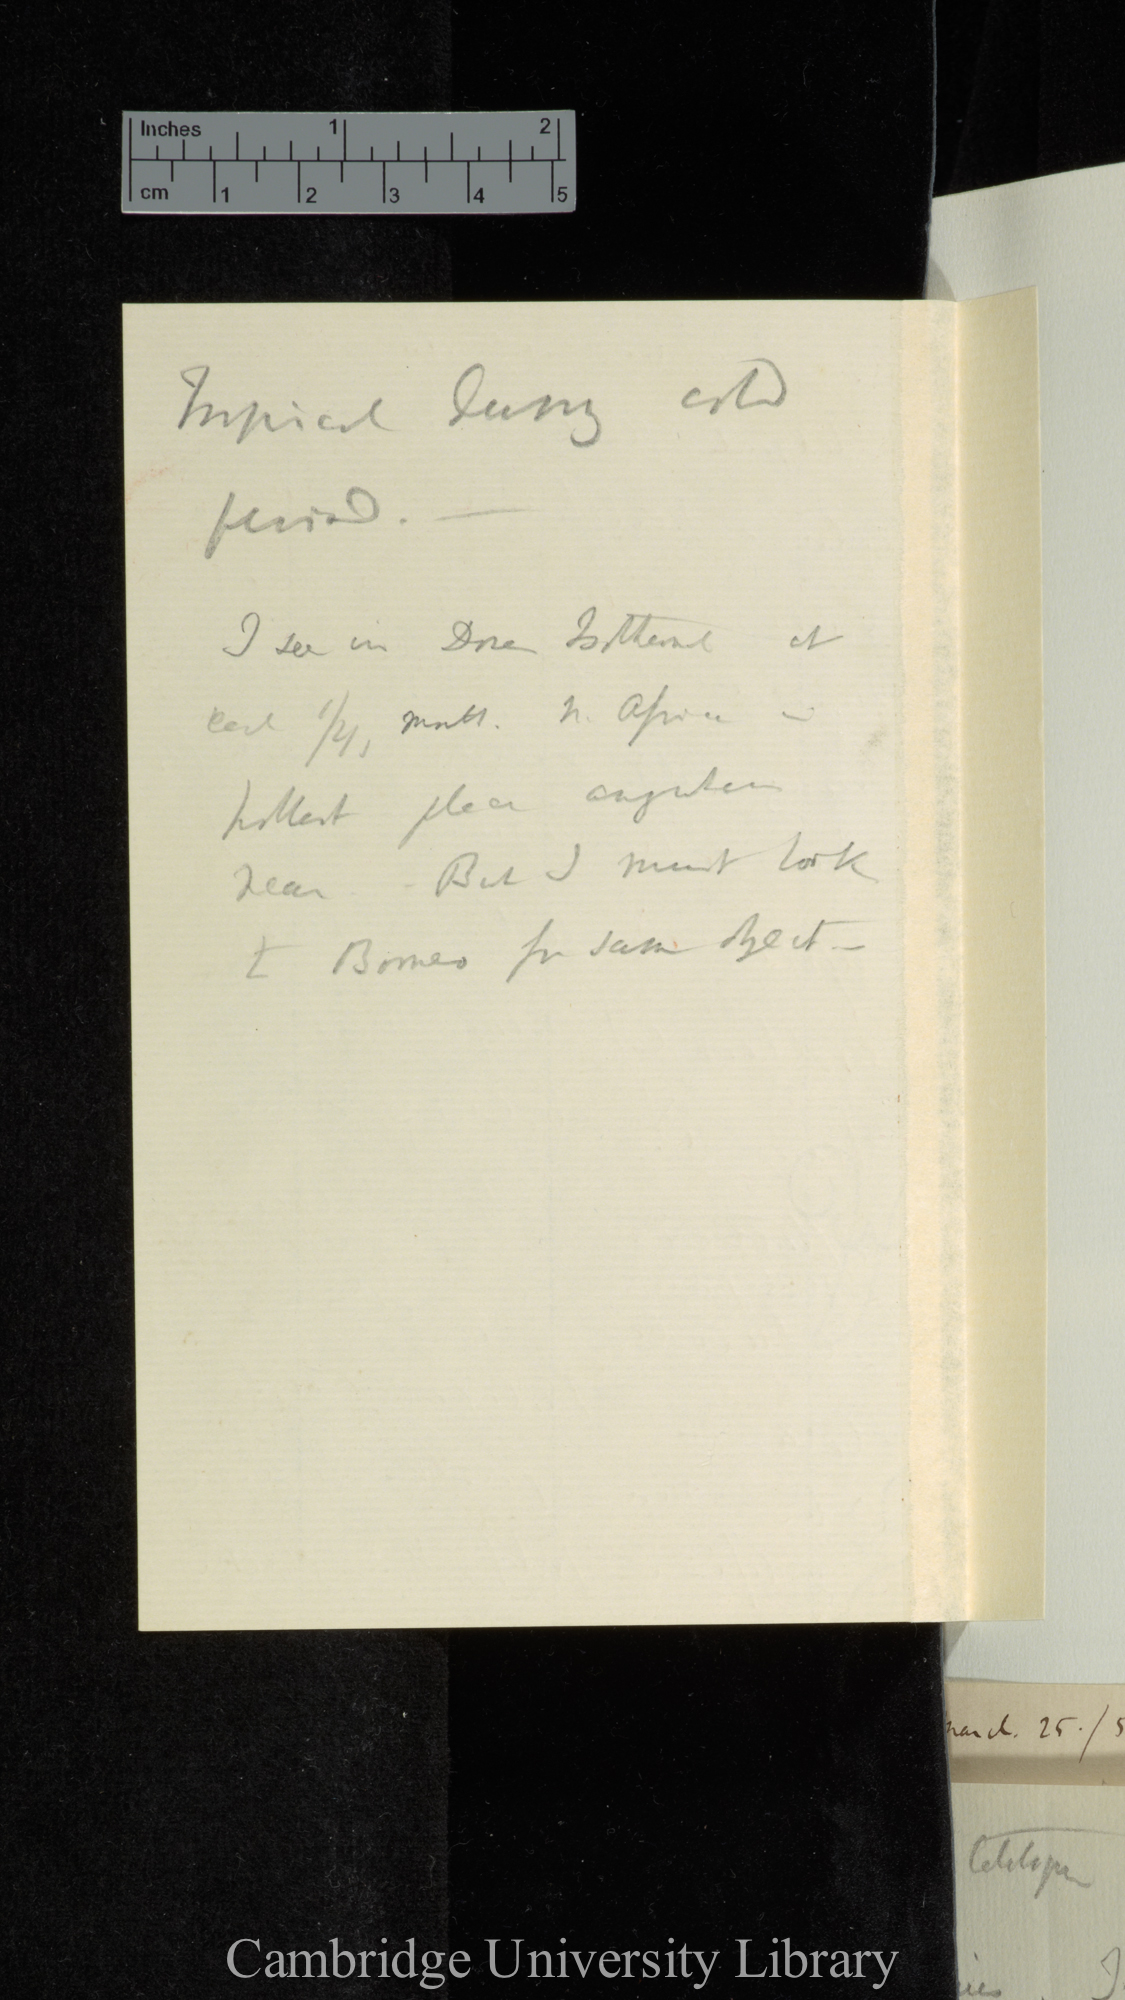 Inches 1 2
cm 1 2 3 4 5
Tropical during cold
period. —
I see in Dove Isothermal at
each month. N. Africa is
hottest place
near - But I must look
to Borneo for same object —
march. 25. / 5
Cambridge University Library